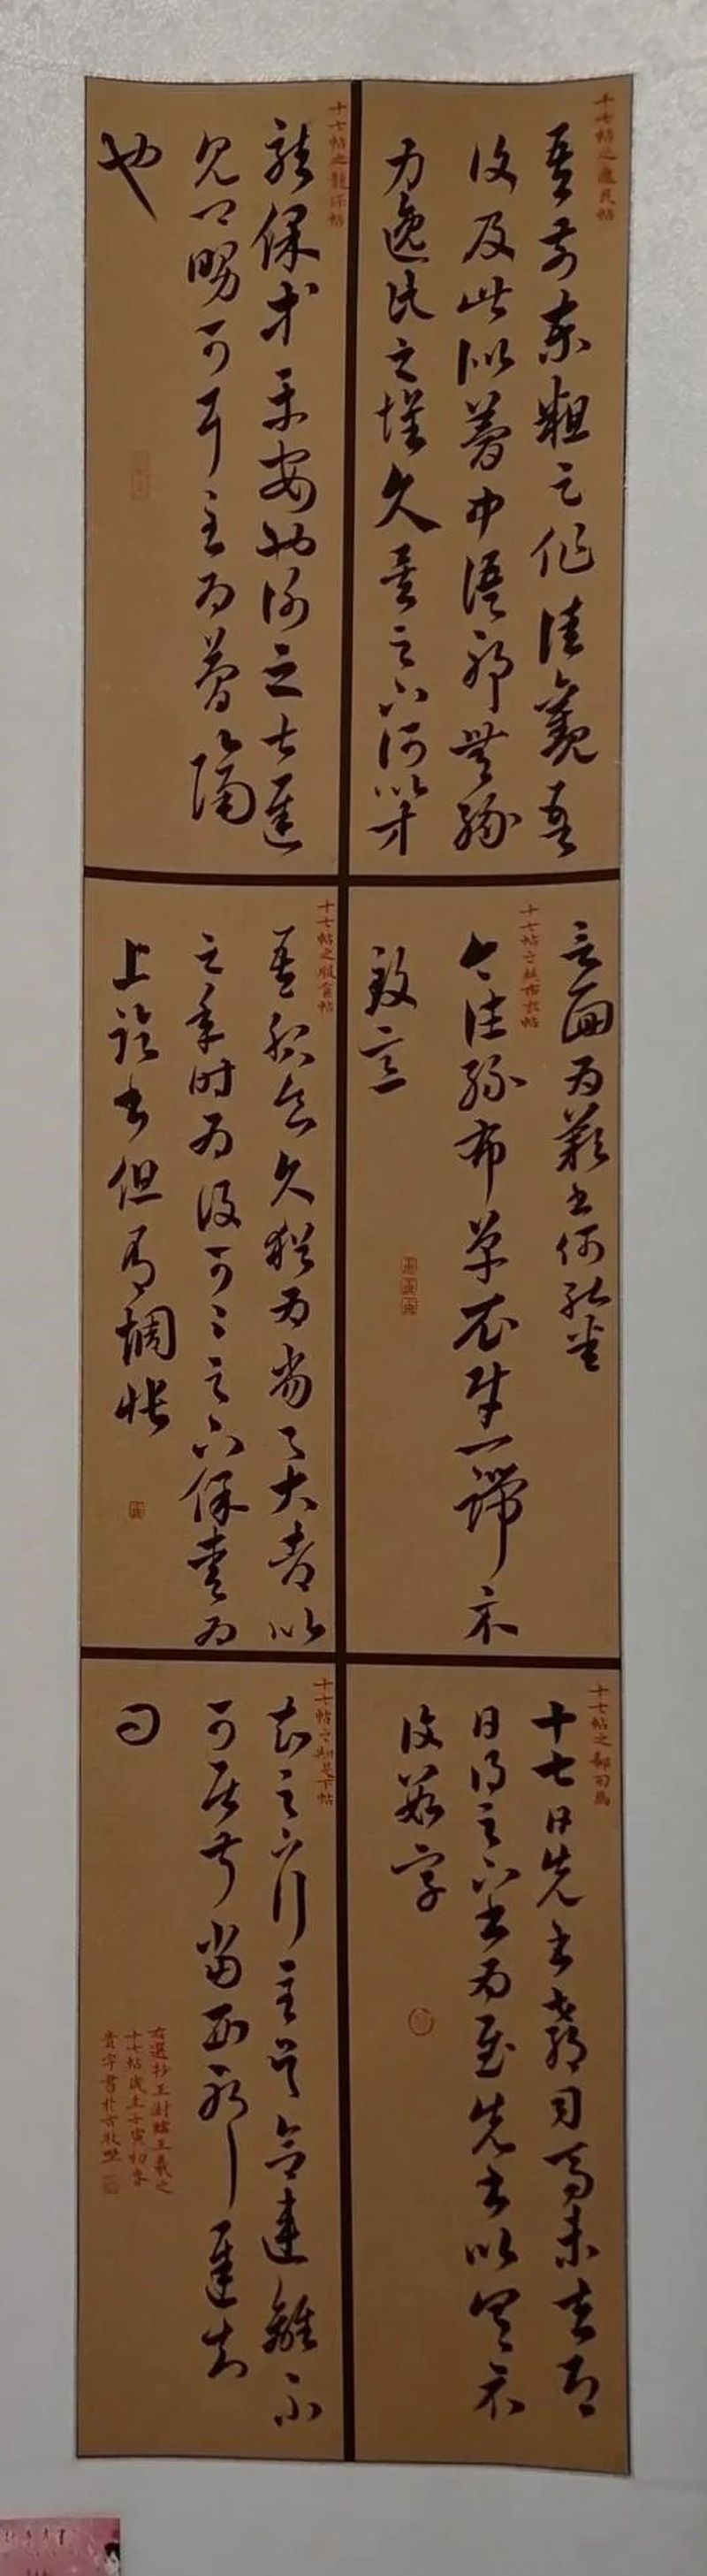 十七帖之逸民帖
吾前東粗足作佳觀吾
復及此似夢中語耶無緣
為逸民之懷久矣足下何以等
言面為歎書何能悉
十七帖之絲布衣帖
今往絲布單衣財一端示
致意
十七帖之郗司馬
十七日先書郗司馬未去即
日得足下書為慰先書以具示
復數字
十七帖之龍保帖
龍保等平安也謝之甚遲
見卿舅可耳至為簡隔
也
十七帖之服食帖
吾服食久猶為劣劣大都比
之年時為復可可足下保愛為
上臨書但有惆悵
十七帖之知足下帖
知足下行至吳念違離不
可居叔當西耶遲知
問
右選抄王澍臨王羲之
十七帖歲在壬寅初冬
貴宇書於古牧野